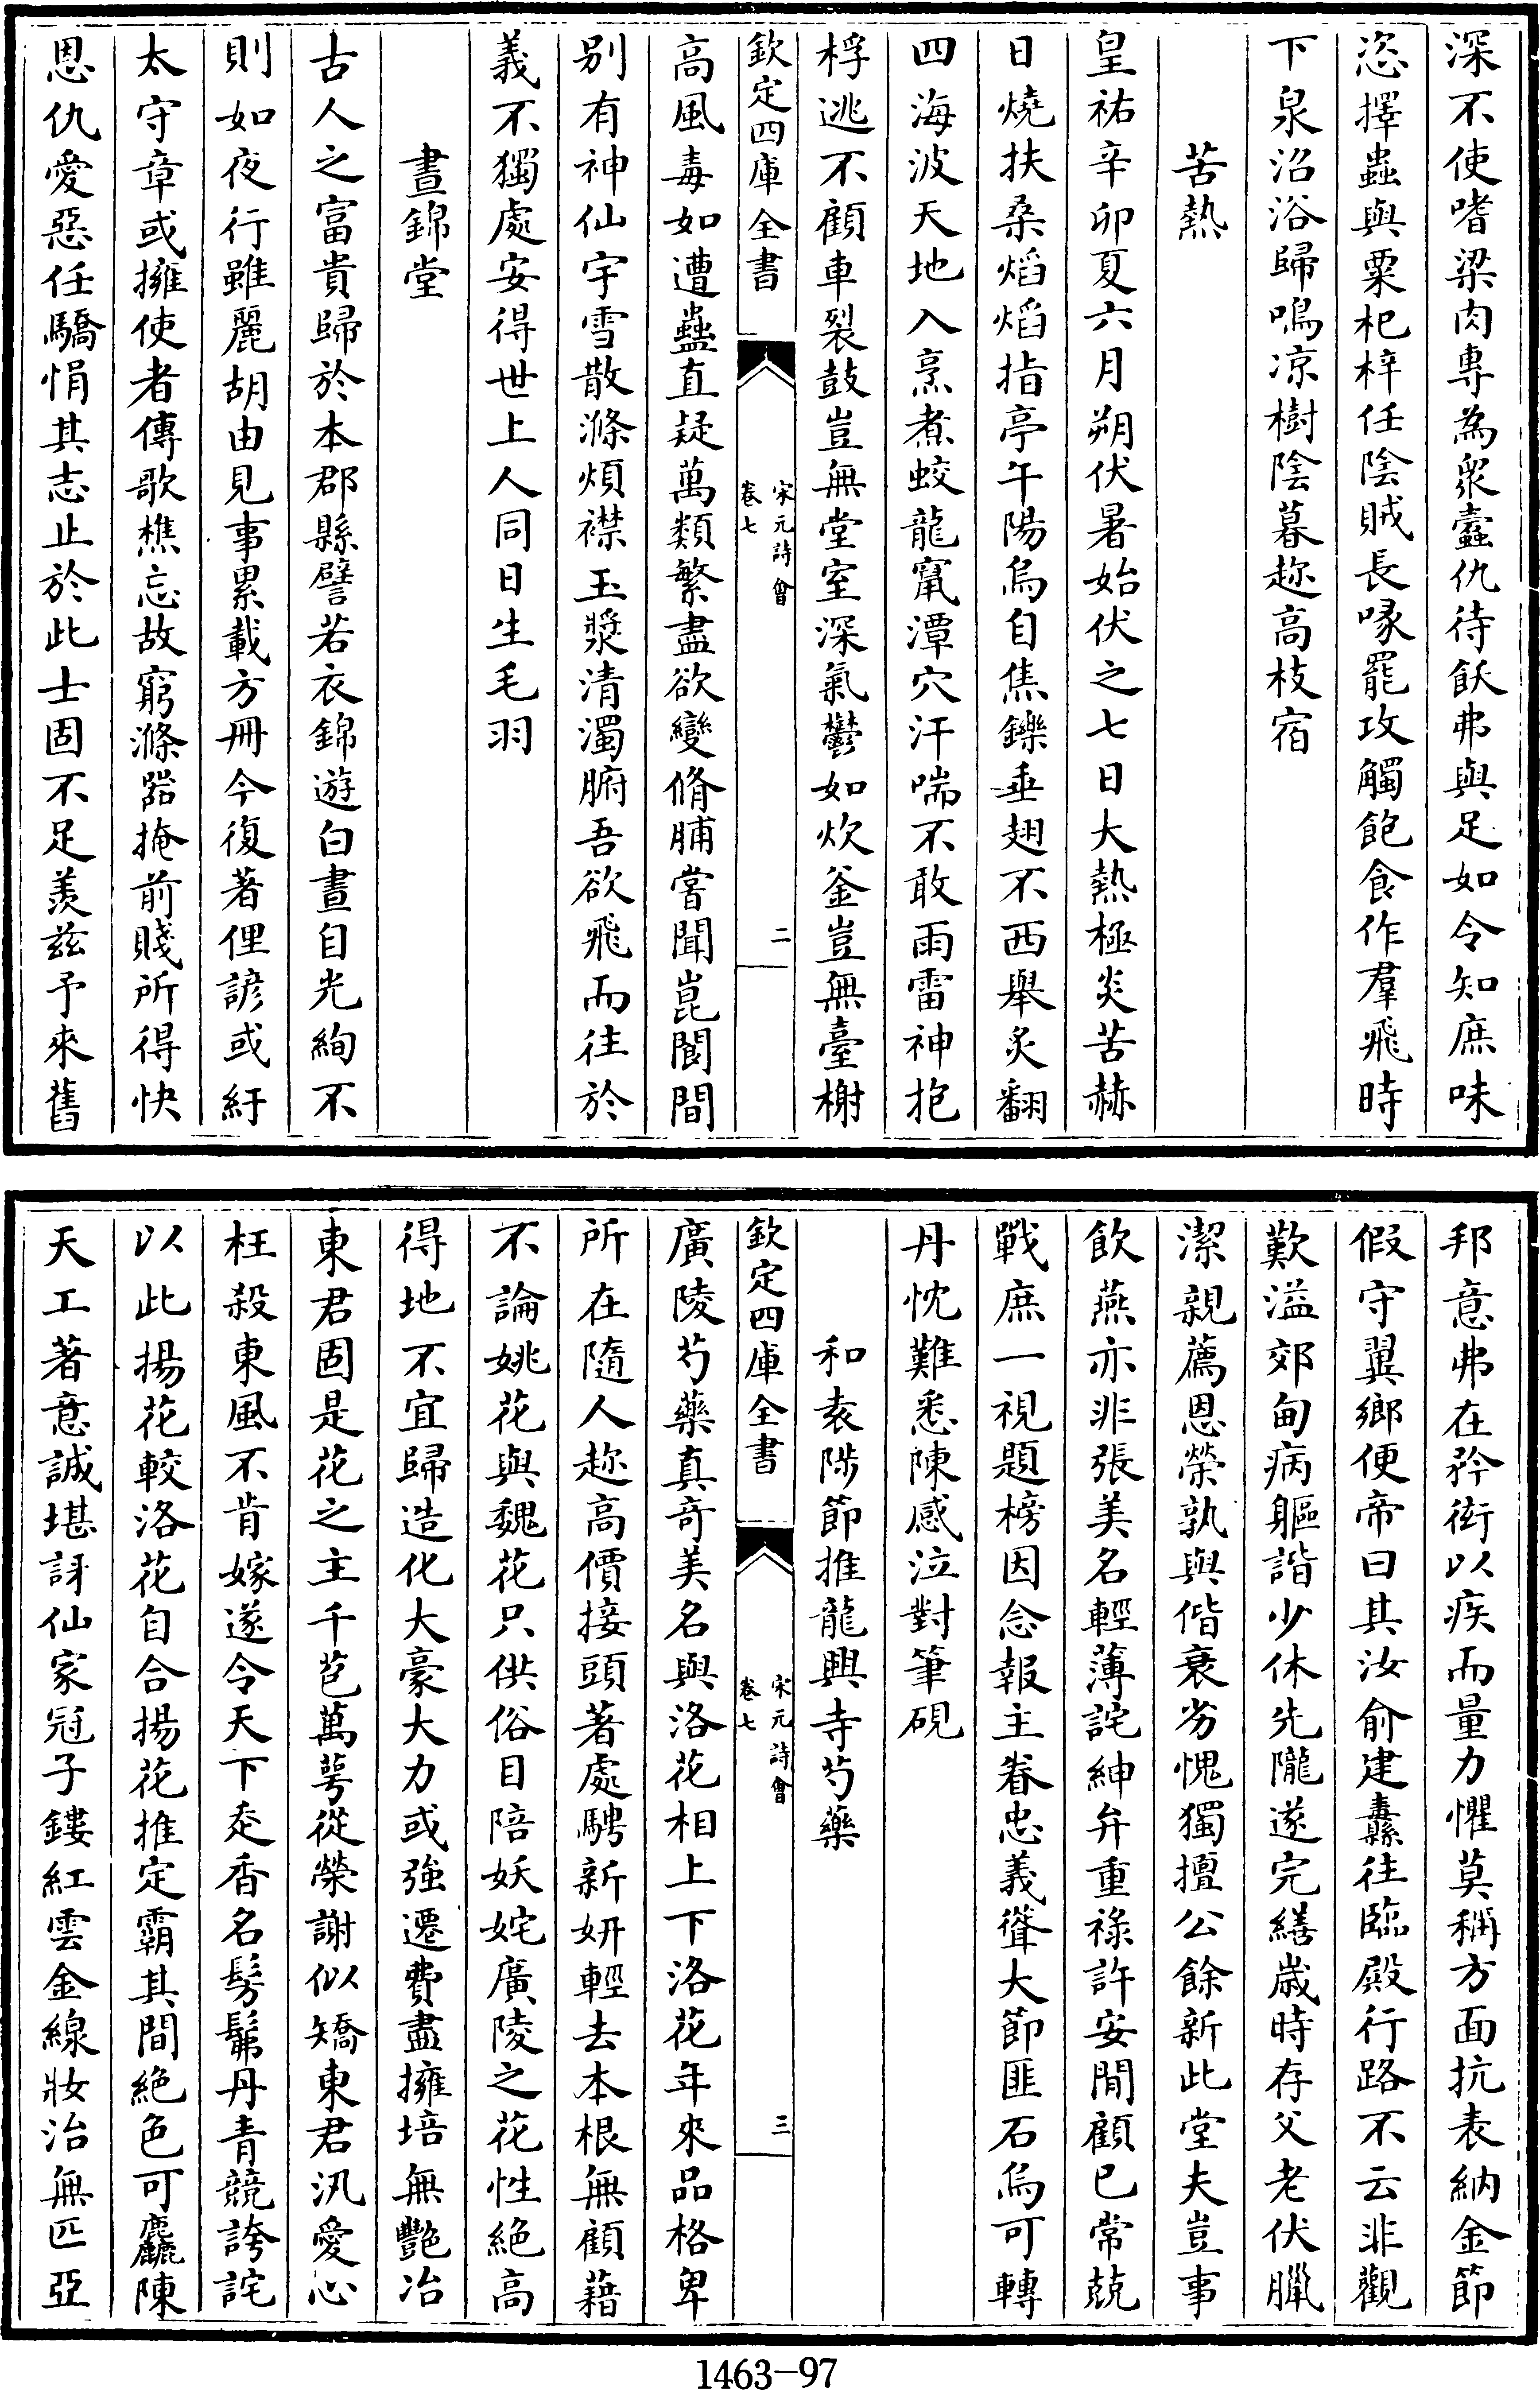 深不使嗜梁肉專為衆蠧仇待飫弗與足如令知庶味
恣擇蟲與粟杞梓任陰賊長喙罷攻觸飽食作羣飛時
下泉沼浴歸鳴凉樹陰暮趂高枝宿
苦熱
皇祐辛卯夏六月朔伏暑始伏之七日大熱極炎苦赫
日燒扶桑焰焰指亭午陽烏自焦鑠垂翅不西舉炙翻
四海波天地入烹煮蛟龍竄潭穴汗喘不敢雨雷神抱
桴逃不顧車裂鼓豈無堂室深氣鬱如炊釜豈無臺榭
欽定四庫全書
宋元詩會
卷七
二
高風毒如遭蠱直疑萬類繁盡欲變脩脯嘗聞崑閬間
别有神仙宇雪散滌煩襟玉漿清濁腑吾欲飛而往於
義不獨處安得世上人同日生毛羽
晝錦堂
古人之富貴歸於本郡縣譬若衣錦遊白晝自光絢不
則如夜行雖麗胡由見事累載方冊今復著俚諺或紆
太守章或擁使者傳歌樵忘故窮滌器掩前賤所得快
恩仇愛惡任驕悁其志止於此士固不足羨兹予來舊
邦意弗在矜衒以疾而量力懼莫稱方面抗表納金節
假守冀鄉便帝曰其汝俞建纛往臨殿行路不云非觀
歎溢郊甸病軀諧少休先隴遂完繕歲時存父老伏臘
潔親薦恩榮孰與偕衰劣愧獨擅公餘新此堂夫豈事
飲燕亦非張美名輕薄詫紳弁重禄許安閒顧已常兢
戰庶一視題榜因念報主眷忠義聳大節匪石烏可轉
丹忱難悉陳感泣對筆硯
和袁陟節推龍興寺芍藥
欽定四庫全書
宋元詩會
卷七
三
廣陵芍藥真奇美名與洛花相上下洛花年來品格卑
所在隨人趂高價接頭著處騁新妍輕去本根無顧藉
不論姚花與魏花只供俗目陪妖姹廣陵之花性絶高
得地不宜歸造化大豪大力或強遷費盡擁培無艷冶
東君固是花之主千苞萬萼從榮謝似矯東君汎愛心
枉殺東風不肯嫁遂令天下走香名髣髴丹青競誇詫
以此揚花較洛花自合揚花推定霸其間絶色可麤陳
天工著意誠堪訝仙家冠子鏤紅雲金線妝治無匹亞
1463-97